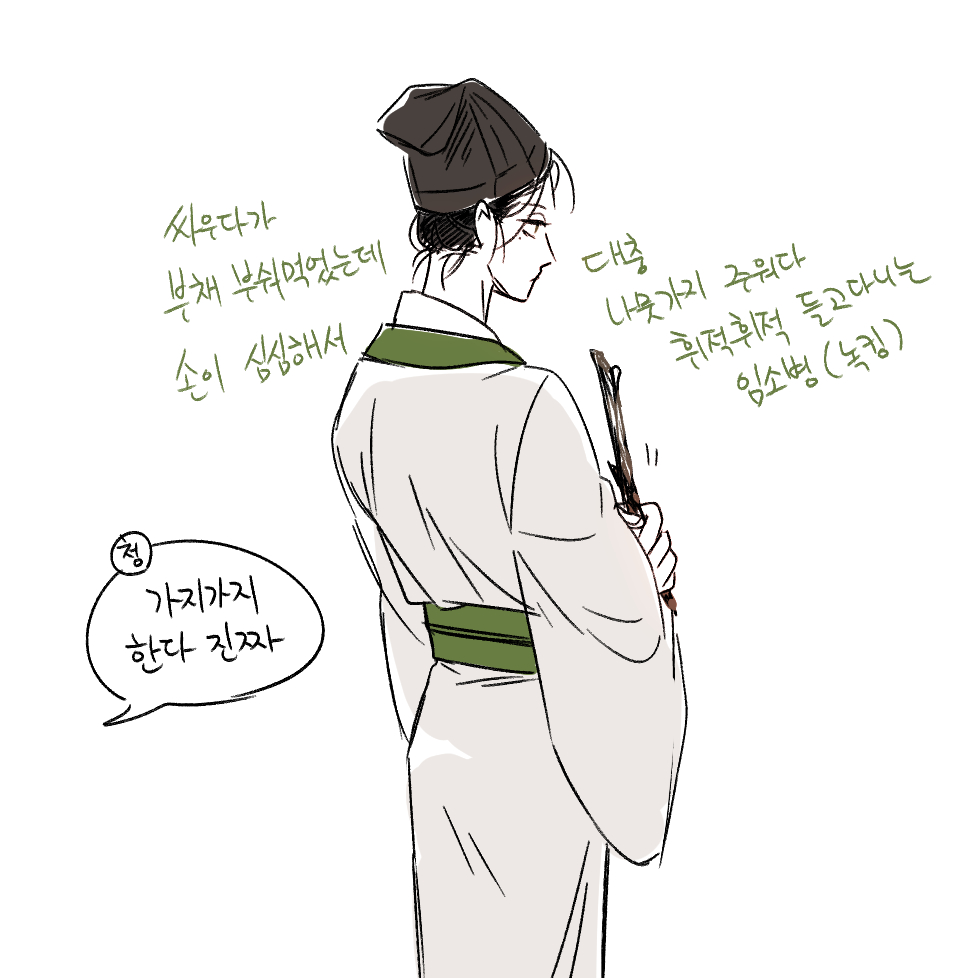 싸우다가
부채 부숴먹었는데
손이 심심해서
대충
나뭇가지 주워다
휘적휘적 들고다니는
임소병 (녹킹)
청
가지가지
한다 진짜